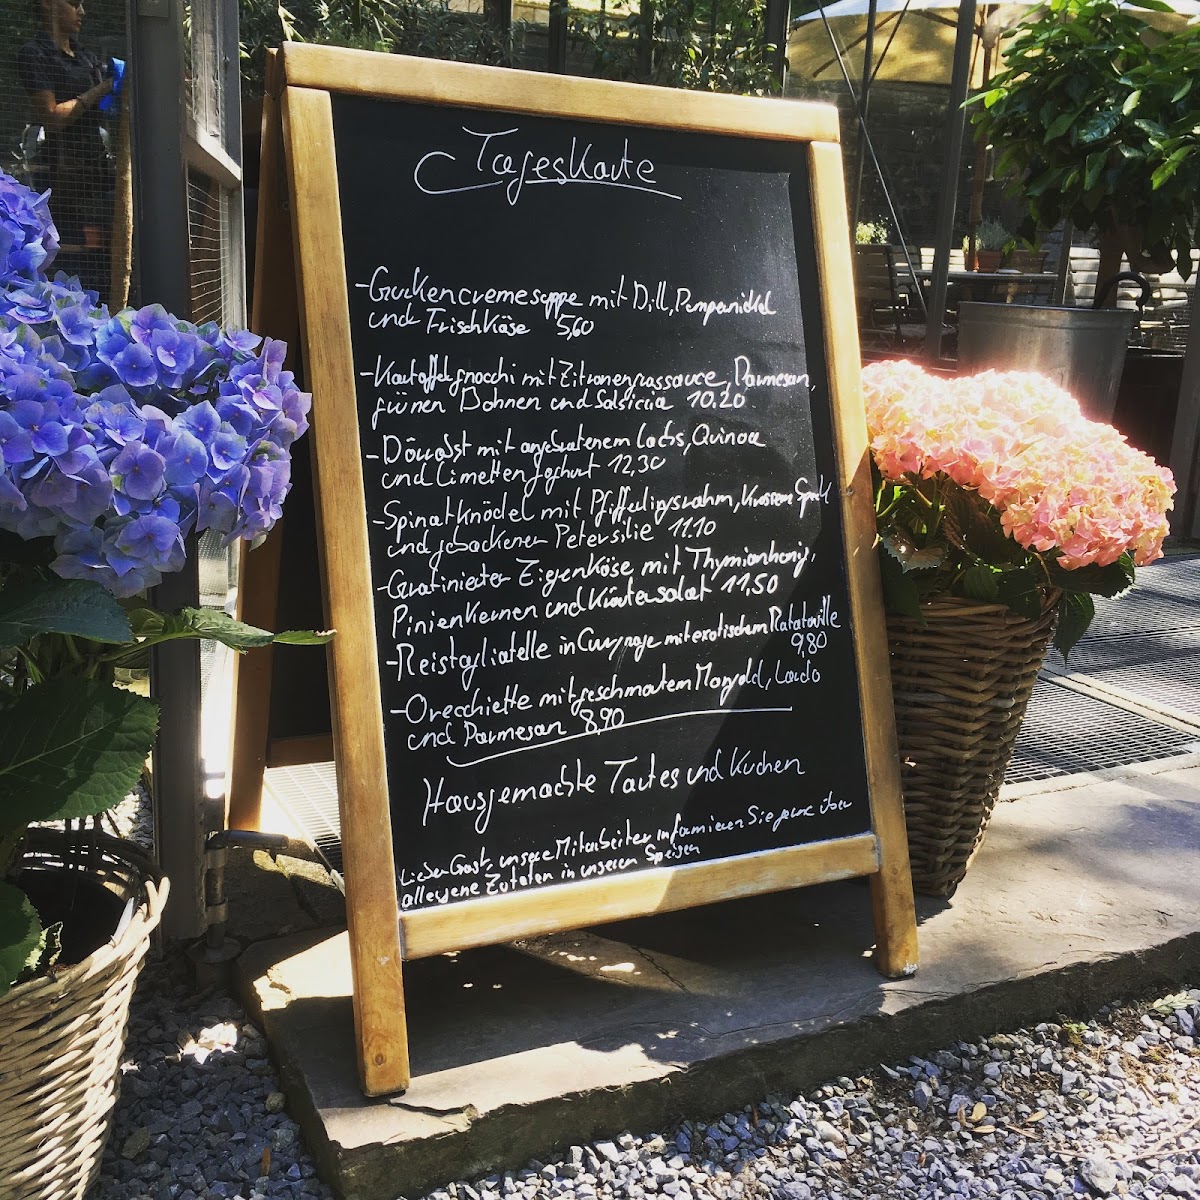 Tageskarte
- Gurkencremesuppe mit Dill, Pumpernickel
und Frischkäse 5,60
- Kartoffelgnocchi mit Zitronengrassauce, Parmesan,
grünen Bohnen und Salsiccia 10,20
- Dörrobst mit angebratenem Lachs, Quinoa
und Limettenjoghurt 12,30
- Spinatknödel mit Pfifferlingsrahm, krossem Speck
und gebackener Petersilie 11,10
- Gratinierter Ziegenkäse mit Thymianhonig,
Pinienkernen und Kräutersalat 11,50
- Reistagliatelle in Currysauce mit exotischem Ratatouille
9,80
- Orecchiette mit geschmortem Mangold, Lardo
und Parmesan 8,90
Hausgemachte Tartes und Kuchen
Lieber Gast, unsere Mitarbeiter informieren Sie gerne über
allergene Zutaten in unseren Speisen